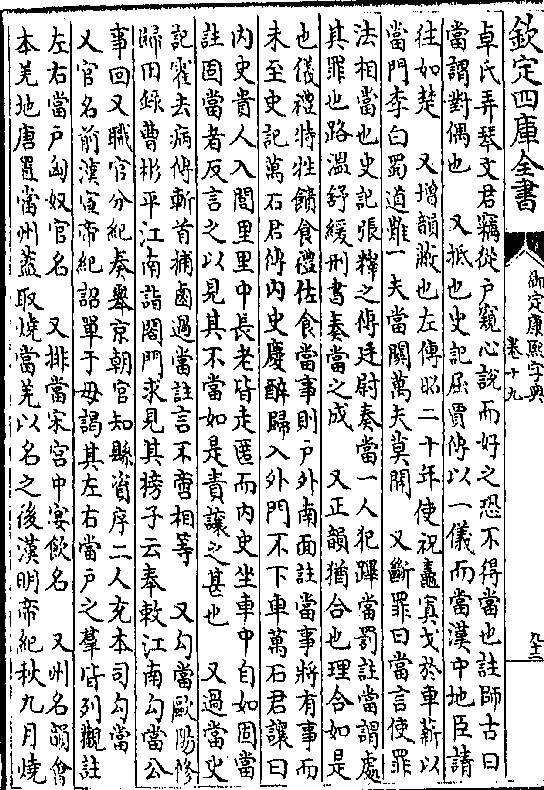 欽定四庫全書
御定康熙字典
卷十九
卓氏弄琴文君竊從戶窺心說而好之恐不得當也註師古曰
當謂對偶也　又抵也史記屈賈傳以一儀而當漢中地臣請
往如楚　又增韻蔽也左傳昭二十年使祝鼃寘戈於車薪以
當門李白蜀道難一夫當關萬夫莫開　又斷罪曰當言使罪
法相當也史記張釋之傳廷尉奏當一人犯蹕當罰註當謂處
其罪也路溫舒緩刑書奏當之成　又正韻猶合也理合如是
也儀禮特牲饋食禮佐食當事則戶外南面註當事將有事而
未至史記萬石君傳內史慶醉歸入外門不下車萬石君讓曰
內史貴人入閭里里中長老皆走匿而內史坐車中自如固當
註固當者反言之以見其不當如是責讓之甚也　又過當史
記霍去病傳斬首捕鹵過當註言不啻相等　又勾當歐陽修
歸田錄曹彬平江南詣閤門求見其榜子云奉敕江南勾當公
事回又職官分紀奏舉京朝官知縣資序二人充本司勾當
又官名前漢宣帝紀詔單于毋謁其左右當戶之羣皆列觀註
左右當戶匈奴官名　又排當宋宮中宴飲名　又州名韻會
本羌地唐置當州蓋取燒當羌以名之後漢明帝紀秋九月燒